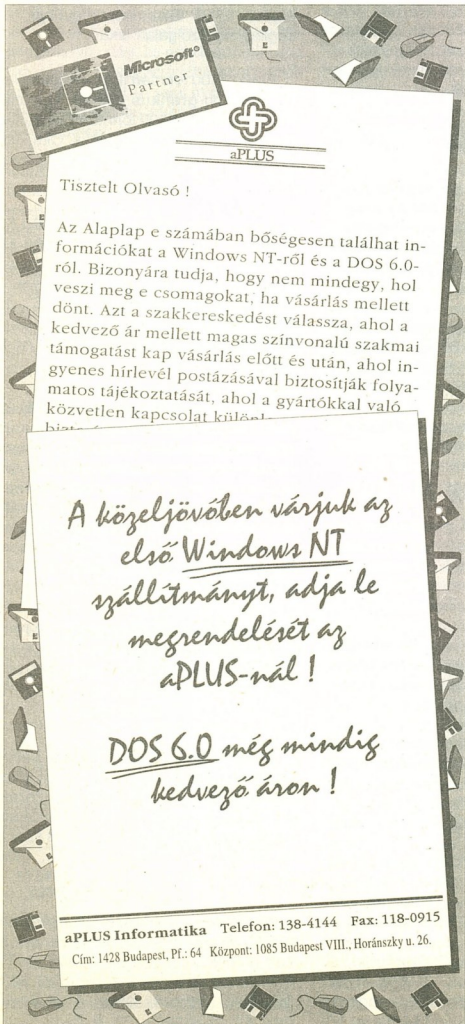 Microsoft®
Partner
aPLUS
Tisztelt Olvasó !
Az Alaplap e számában bőségesen találhat in-
formációkat a Windows NT-ről és a DOS 6.0-
ról. Bizonyára tudja, hogy nem mindegy, hol
veszi meg e csomagokat, ha vásárlás mellett
dönt. Azt a szakkereskedést válassza, ahol a
kedvező ár mellett magas színvonalú szakmai
támogatást kap vásárlás előtt és után, ahol in-
gyenes hírlevél postázásával biztosítják folya-
matos tájékoztatását, ahol a gyártókkal való
közvetlen kapcsolat
A közeljövőben várjuk az
első Windows NT
szállítmányt, adja le
megrendelését az
aPLUS-nál !
DOS 6.0 még mindig
kedvező áron !
aPLUS Informatika Telefon: 138-4144 Fax: 118-0915
Cím: 1428 Budapest, Pf.: 64 Központ: 1085 Budapest VIII., Horánszky u. 26.